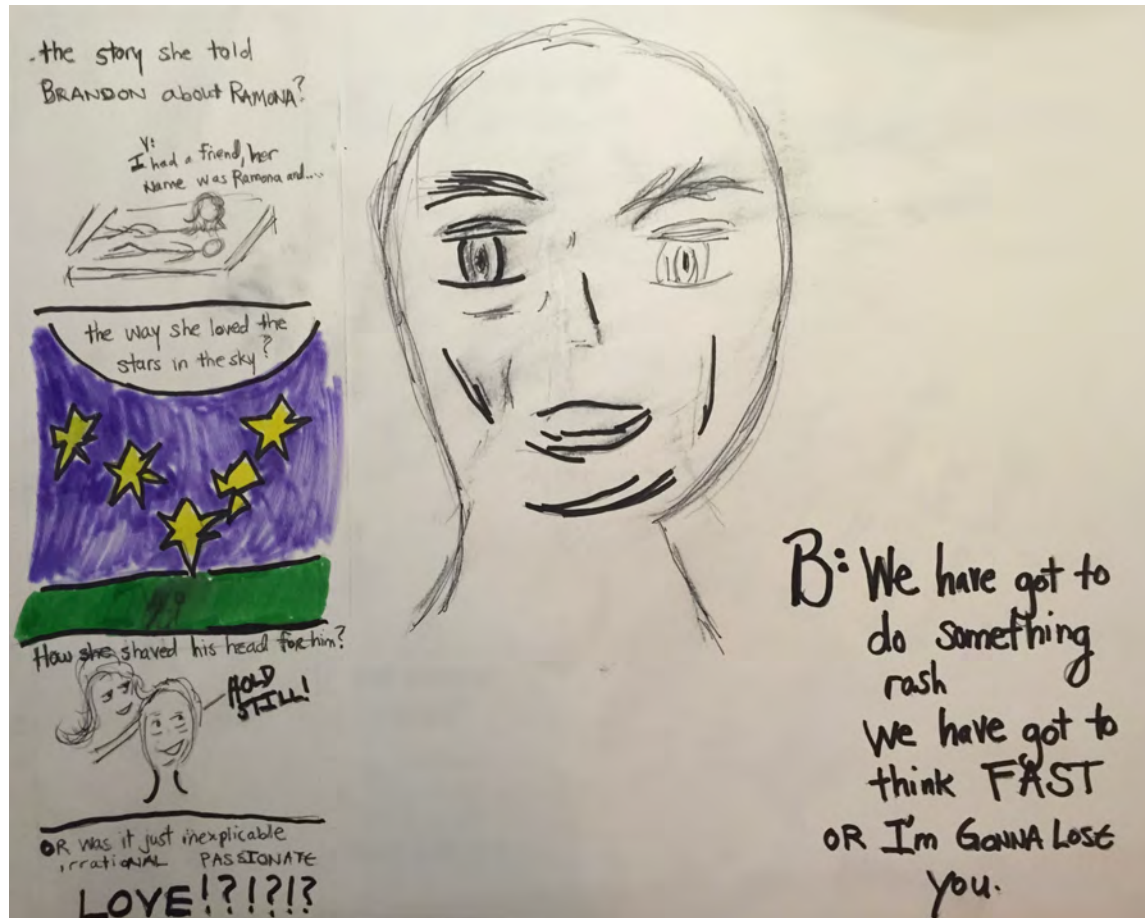 the story she told
BRANDON about RAMONA?
V:
I had a friend, her
Name was Ramona and....
the way she loved the
stars in the sky?
How she shaved his head for him?
HOLD
STILL!
OR was it just inexplicable
irrational PASSIONATE
LOVE!?!?!?
B: We have got to
do something
rash
We have got to
think FAST
OR I'm GONNA LOSE
you.